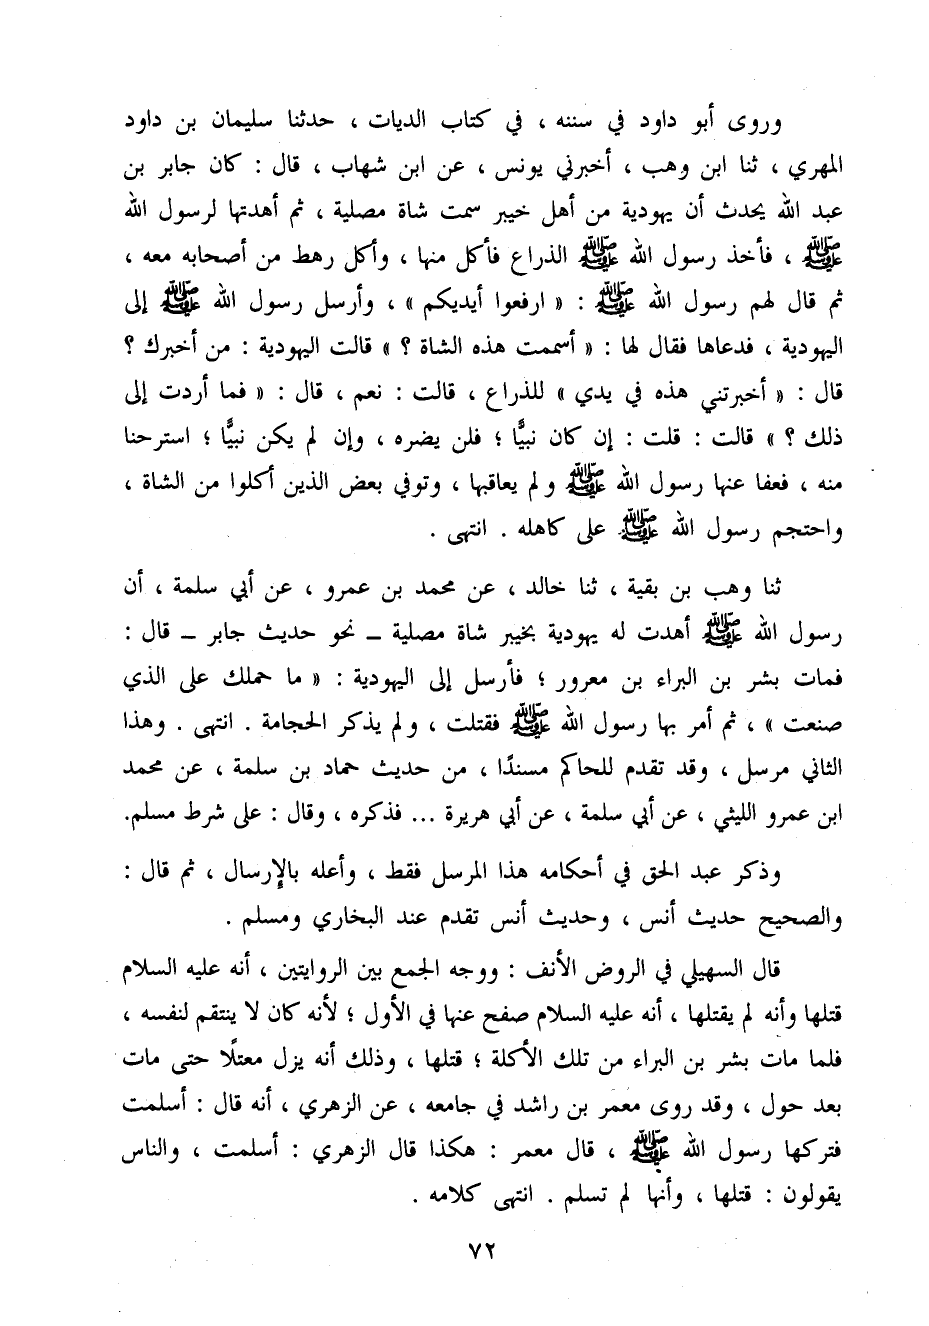 وروى أبو داود في سننه ، في كتاب الديات ، حدثنا سليمان بن داود
المهري ، ثنا ابن وهب ، أخبرني يونس ، عن ابن شهاب ، قال : كان جابر بن
عبد الله يحدث أن يهودية من أهل خيبر سمت شاة مصلية ، ثم أهدتها لرسول الله
ﷺ ، فأخذ رسول الله ﷺ الذراع فأكل منها ، وأكل رهط من أصحابه معه ،
ثم قال لهم رسول الله ﷺ : « ارفعوا أيديكم » ، وأرسل رسول الله ﷺ إلى
اليهودية ، فدعاها فقال لها : « أسممت هذه الشاة ؟ » قالت اليهودية : من أخبرك ؟
قال : « أخبرتني هذه في يدي » للذراع ، قالت : نعم ، قال : « فما أردت إلى
ذلك ؟ » قالت : قلت : إن كان نبيًّا ؛ فلن يضره ، وإن لم يكن نبيًّا ؛ استرحنا
منه ، فعفا عنها رسول الله ﷺ ولم يعاقبها ، وتوفي بعض الذين أكلوا من الشاة ،
واحتجم رسول الله ﷺ على كاهله . انتهى .
ثنا وهب بن بقية ، ثنا خالد ، عن محمد بن عمرو ، عن أبي سلمة ، أن
رسول الله ﷺ أهدت له يهودية بخيبر شاة مصلية ــ نحو حديث جابر ــ قال :
فمات بشر بن البراء بن معرور ؛ فأرسل إلى اليهودية : « ما حملك على الذي
صنعت » ، ثم أمر بها رسول الله ﷺ فقتلت ، ولم يذكر الحجامة . انتهى . وهذا
الثاني مرسل ، وقد تقدم للحاكم مسندًا ، من حديث حماد بن سلمة ، عن محمد
ابن عمرو الليثي ، عن أبي سلمة ، عن أبي هريرة ... فذكره ، وقال : على شرط مسلم.
وذكر عبد الحق في أحكامه هذا المرسل فقط ، وأعله بالإرسال ، ثم قال :
والصحيح حديث أنس ، وحديث أنس تقدم عند البخاري ومسلم .
قال السهيلي في الروض الأنف : ووجه الجمع بين الروايتين ، أنه عليه السلام
قتلها وأنه لم يقتلها ، أنه عليه السلام صفح عنها في الأول ؛ لأنه كان لا ينتقم لنفسه ،
فلما مات بشر بن البراء من تلك الأكلة ؛ قتلها ، وذلك أنه يزل معتلًا حتى مات
بعد حول ، وقد روى معمر بن راشد في جامعه ، عن الزهري ، أنه قال : أسلمت
فتركها رسول الله ﷺ ، قال معمر : هكذا قال الزهري : أسلمت ، والناس
يقولون : قتلها ، وأنها لم تسلم . انتهى كلامه .
٧٢